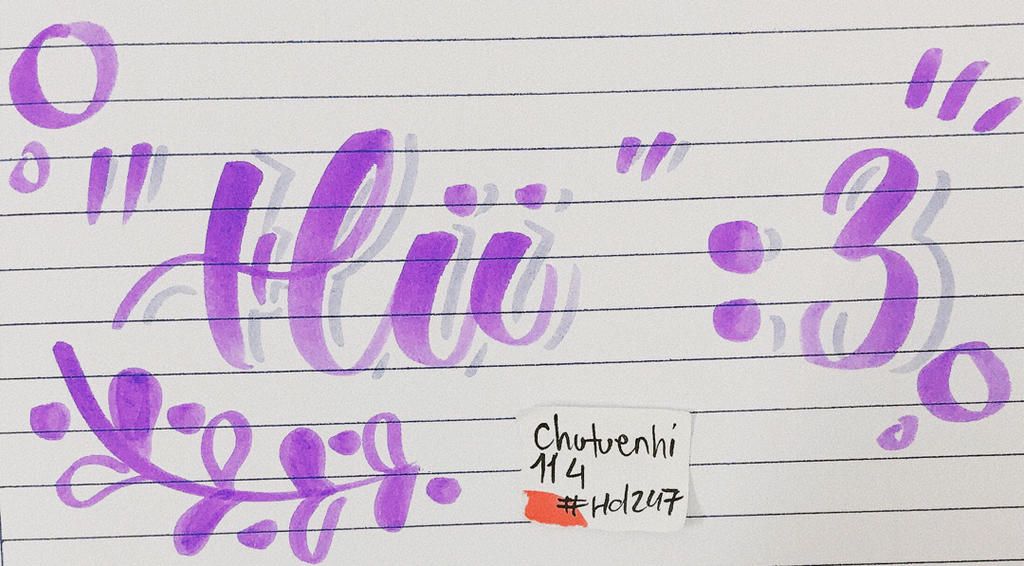 "Hii" :3
Chutuenhi
114
#Hd247